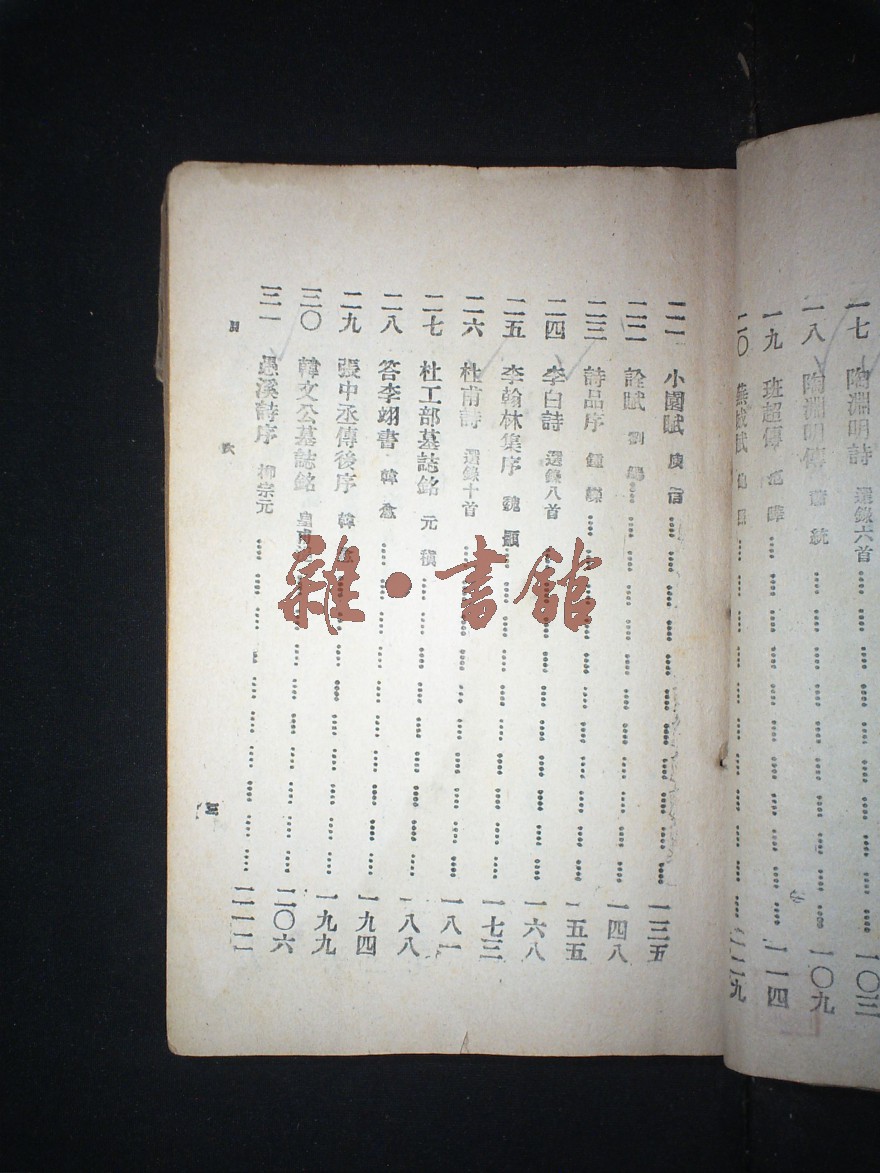 一七 陶淵明詩 選錄六首 一〇三
一八 陶淵明傳 蕭統 一〇九
一九 班超傳 范曄 一一四
二〇 蕪城賦 鮑照 一二九
二一 小園賦 庾信 一三五
二二 詮賦 劉勰 一四八
二三 詩品序 鍾嶸 一五五
二四 李白詩 選錄八首 一六八
二五 李翰林集序 魏顥 一七三
二六 杜甫詩 選錄十首 一八一
二七 杜工部墓誌銘 元稹 一八八
二八 答李翊書 韓愈 一九四
二九 張中丞傳後序 韓愈 一九九
三〇 韓文公墓誌銘 皇甫 二〇六
三一 愚溪詩序 柳宗元 二一二
目 次
三
雜·書館